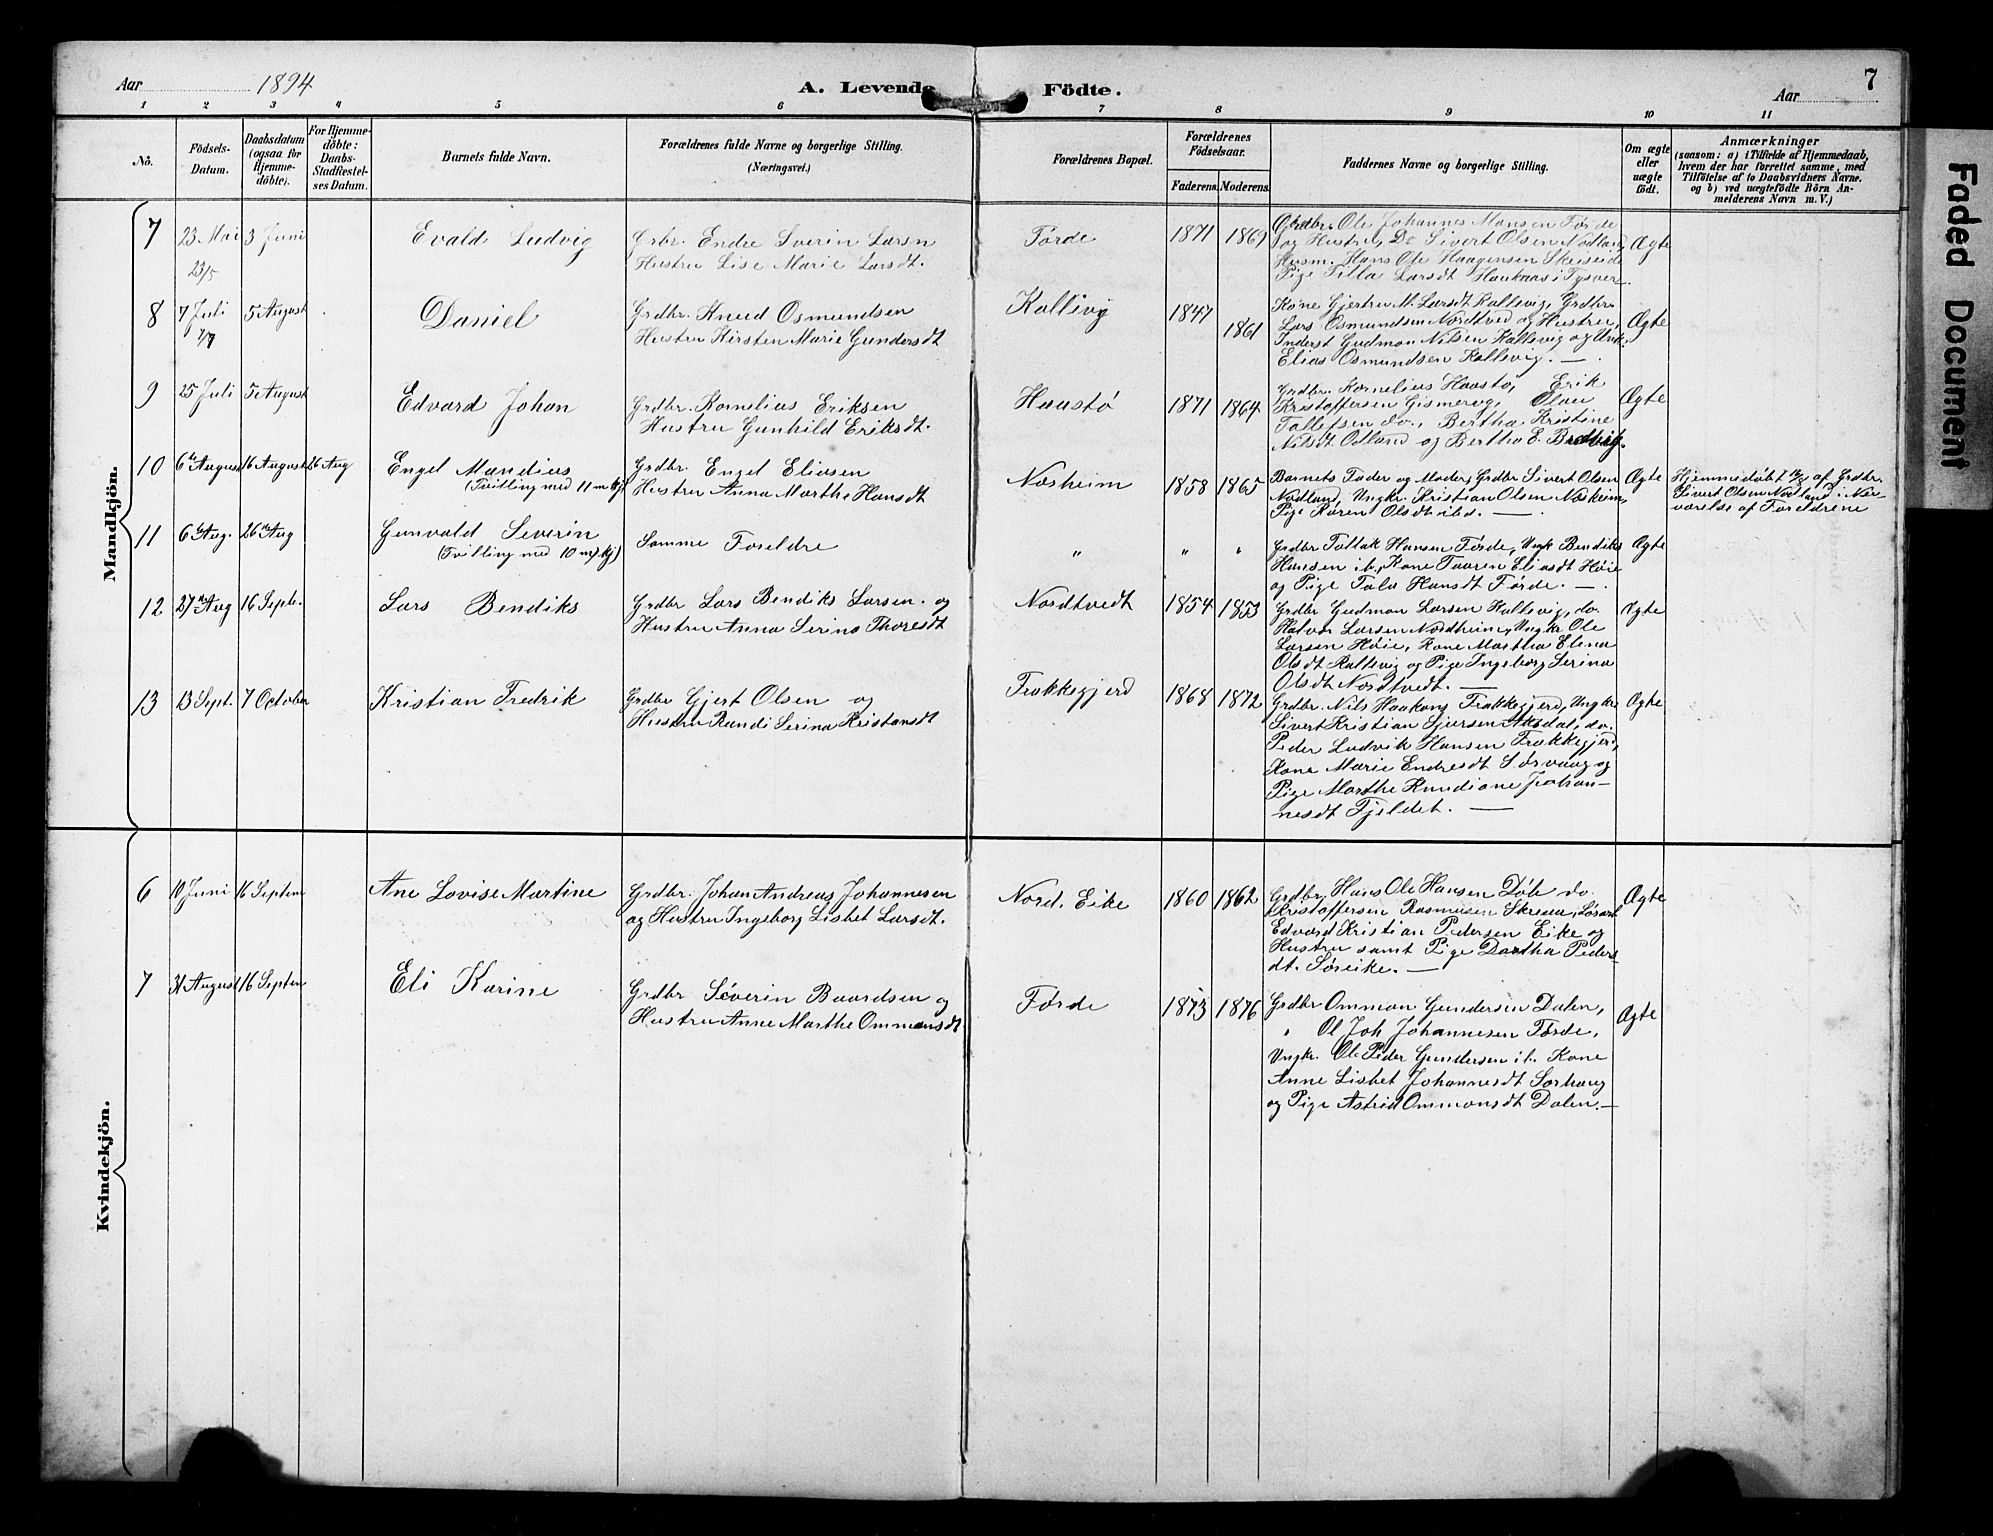 Aar 1894 A. Levende Födte. Aar 7
1 2 3 4 5 6 7 8 9 10 11
No.
Födsels-
Datum.
Daabsdatum
(ogsaa for
Hjemme-
döbte).
For Hjemme-
döbte:
Daabs-
Stadfæstel-
ses Datum.
Barnets fulde Navn.
Forældrenes fulde Navne og borgerlige Stilling.
(Næringsvei.)
Forældrenes Bopæl.
Forældrenes
Födselsaar.
Faderens. Moderens.
Faddernes Navne og borgerlige Stilling.
Om ægte
eller
uægte
födt.
Anmærkninger
(saasom: a) i Tilfælde af Hjemmedaab,
hvem der har forrettet samme, med
Tilföielse af to Daabsvidners Navne.
og b) ved uægtefödte Börn An-
melderens Navn m. V.)
Mandkjön.
7 23 Mai 3 Juni
23/5
Evald Ludvig
Grbr. Endre Sverin Larsn
Hustru Lise Marie Larsdt.
Førde
1871 1869
Grdbr. Ole Johannes Hansen Førde
og Hustru, Do Sivert Olsen Nodland,
Husm. Hans Ole Haagensen Skeiseid
Pige Tilla Larsdt Hauknæs i Tysvær.
Ægte
8 7 Juli 5 August
7/7
Daniel
Grdbr. Knud Osmundsen
Hustru Kirsten Marie Gundersdt
Kallevig
1847 1861
Kone Gjertru M. Larsdt Kallevig, Grdbr.
Lars Osmundsen Nordtved og Hustru,
Inderst Gudmon Nilsen Kallevig og Unk.
Elias Osmundsen Kallevig. —
Ægte
9 25 Juli 5 August
Edvard Johan
Grdbr. Kornelius Eriksen
Hustru Gunhild Eriksdt.
Haustø
1871 1864
Grdbr. Kornelius Haustø, Erik
Kristoffersen Gismervig, Olau
Tallefsen do., Bertha Kristine
Nilsdt Odland og Bertha E. Bredvig.
Ægte
10 6te August 16 August 26 Aug
Engel Mandius
(Tvilling med 11 m kj)
Grdbr. Engel Eliasen
Hustru Anna Marthe Hansdt
Næsheim
1858 1865
Barnets Fader og Moder, Grdbr Sivert Olsen
Nodland, Ungkr. Kristian Olsen Næsheim,
Pige Karen Olsdt ibd. —
Ægte
Hjemmedøbt af Grdbr.
Sivert Olsen Nodland i Nær-
værelse af Foreldrene
11 6te Aug. 26de Aug
Gunvald Severin
(Tvilling med 10 m kj)
Samme Foreldre
" " "
Grdbr Tollak Hansen Førde, Ungk Bendiks
Hansen ib., Kone Taaren Eliasdt Høie
og Pige Tala Hansdt Førde. —
Ægte
12 27de Aug 16 Septr.
Lars Bendiks
Grdbr Lars Bendiks Larsen. og
Hustru Anna Serina Thoresdt
Nordtvedt
1854 1853
Grdbr Gudmon Larsen Kallevig, do.
Halvor Larsen Nordheim, Ungkr Ole
Larsen Høie, Kone Martha Elena
Olsdt Kallevig og Pige Ingeborg Serina
Olsdt Nordtvedt. —
Ægte
13 13 Sept. 7 October
Kristian Fredrik
Grdbr Gjert Olsen og
Hustru Randi Serina Kristansdt
Frakkegjerd
1868 1872
Grdbr. Nils Haakons Frakkegjerd, Ungkr
Sivert Kristian Sjursen Aksdal, do.
Peder Ludvik Hansen Frakkegjerd,
Kone Marie Endresdt Sørvaag og
Pige Marthe Knudiane Johan-
nesdt Fjeldet. —
Ægte
Kvindekjön.
6 10 Juni 16 Septem
Ane Lovise Martine
Grdbr. Johan Andreas Johannesen
og Hustru Ingeborg Lisbet Larsdt.
Nord. Eike
1860 1862
Grdbr, Hans Ole Hansen Døle do.
Kristoffersen Rasmusen Skreaa,
Edvard Kristian Pedersen Eike og
Hustru samt Pige Dortha Peders-
dt. Søreike. —
Ægte
7 31 August 16 Septem
Eli Karine
Grdbr Séverin Baardsen og
Hustru Anne Marthe Ommonsdt
Førde
1873 1876
Grdbr Ommon Gundersen Dalen,
" Ol Joh Johannesen Førde,
Ungkr. Ole Peder Gundersen ib. Kone
Anne Lisbet Johannesdt Sørhaug
og Pige Astrid Ommonsdt Dalen. —
Ægte
Faded Document